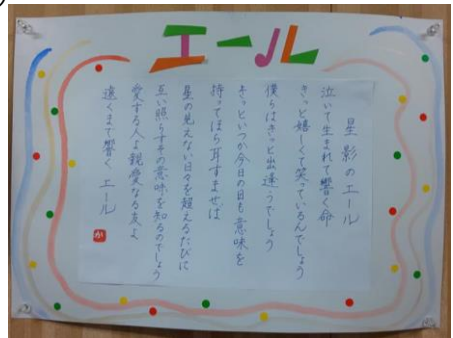 エール
星影のエール
泣いて生まれて響く命
きっと嬉しくて笑っているんでしょう
僕らはきっと出逢うでしょう
きっといつか今日の日も意味を
持ってほら耳すませば
星の見えない日々を超えるたびに
互い照らすその意味を知るのでしょう
愛する人よ親愛なる友よ
遠くまで響く エール
か